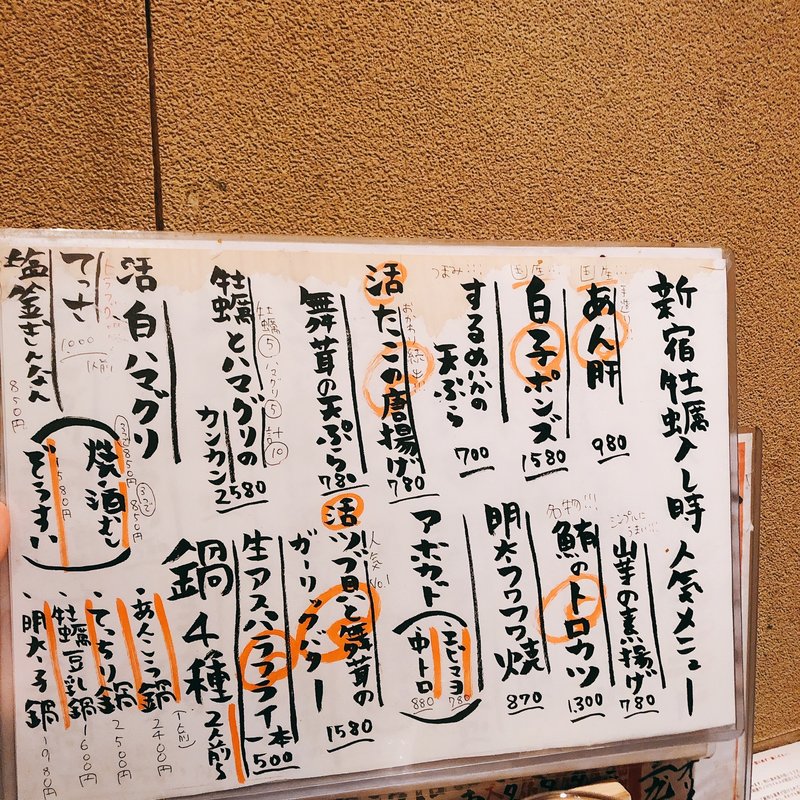 新宿牡蠣入レ時 人気メニュー
国産… 手造り
あん肝
980
国産…
白子ポンズ
1580
つまみ…
するめいかの
天ぷら
700
おかわり続出
活たこの唐揚げ
780
舞茸の天ぷら
780
牡蠣⑤ ハマグリ⑤ 計⑩
牡蠣とハマグリの
カンカン
2580
活 白ハマグリ
焼・酒むし
3コ 850円
3つで 850円
てっさ
トラフグ
1000 1人前
塩釜ぎんなん
850円
ぞうすい
580円
シンプルにうまい!!
山芋の素揚げ
780
名物!!!
鮪のトロカツ
1300
明太フワフワ焼
870
アボカド
エビマヨ
780
中トロ
880
人気No.1
活ツブ貝と舞茸の
ガーリックバター
1580
生アスパラフライ
一本
500
鍋4種 2人前〜
(1人前)
・あんこう鍋 2400円
・てっちり鍋 2500円
・牡蠣豆乳鍋 1600円
・明太子鍋 1980円